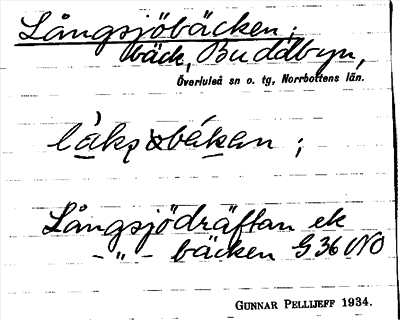 Långsjöbäcken;
bäck, Buddbyn,
Överluleå sn o. tg, Norrbottens län.
Långsjödräftan ek
-"- bäcken G 36 NO
GUNNAR PELLIJEFF 1934.